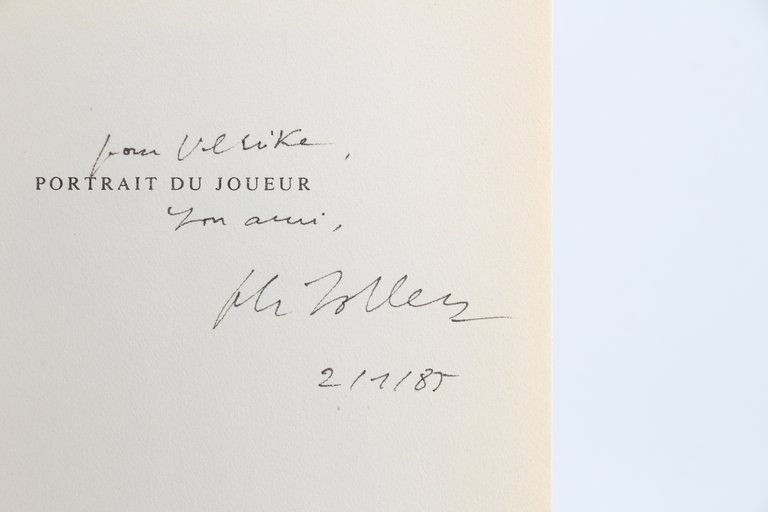 pour Ulrike,
PORTRAIT DU JOUEUR
ton ami,
Ph. Sollers
2/1/85